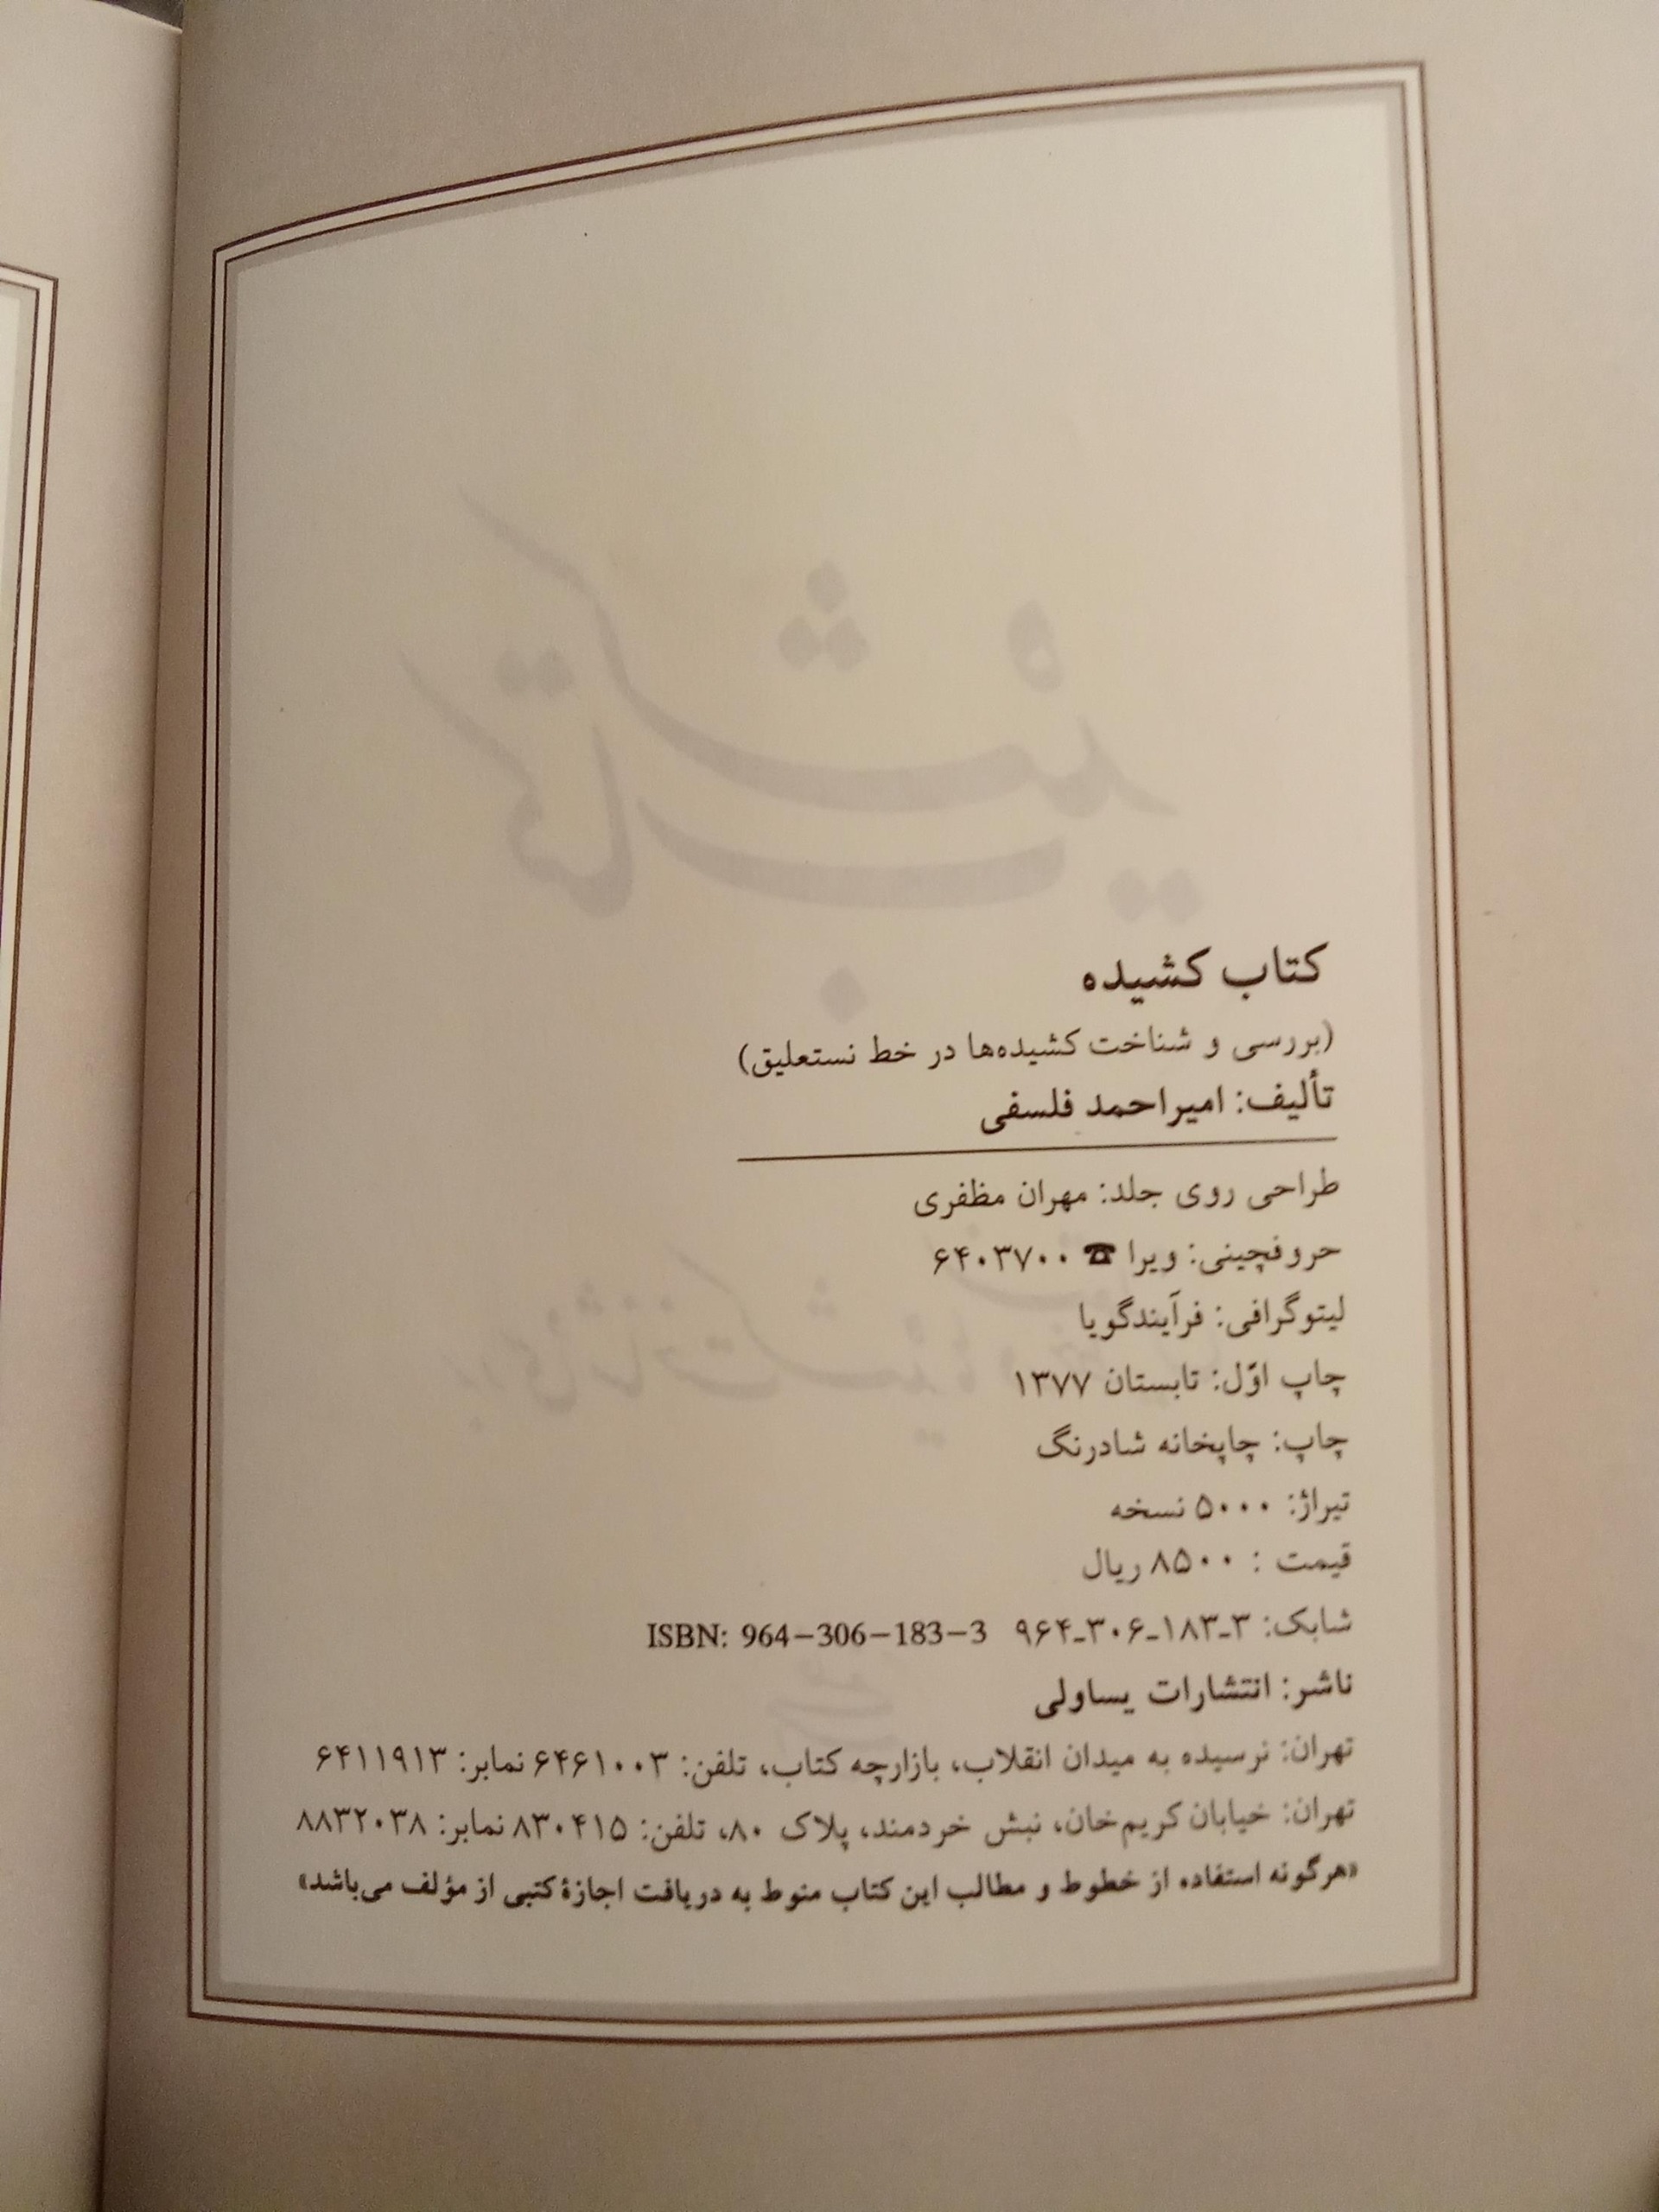 کتاب کشیده
(بررسی و شناخت کشیده‌ها در خط نستعلیق)
تألیف: امیراحمد فلسفی
طراحی روی جلد: مهران مظفری
حروفچینی: ویرا ☎ ۶۴۰۳۷۰۰
لیتوگرافی: فرآیندگویا
چاپ اوّل: تابستان ۱۳۷۷
چاپ: چاپخانه شادرنگ
تیراژ: ۵۰۰۰ نسخه
قیمت : ۸۵۰۰ ریال
شابک: ۳-۱۸۳-۳۰۶-۹۶۴ ISBN: 964-306-183-3
ناشر: انتشارات یساولی
تهران: نرسیده به میدان انقلاب، بازارچه کتاب، تلفن: ۶۴۶۱۰۰۳ نمابر: ۶۴۱۱۹۱۳
تهران: خیابان کریم‌خان، نبش خردمند، پلاک ۸۰، تلفن: ۸۳۰۴۱۵ نمابر: ۸۸۳۲۰۳۸
«هرگونه استفاده از خطوط و مطالب این کتاب منوط به دریافت اجازهٔ کتبی از مؤلف می‌باشد»